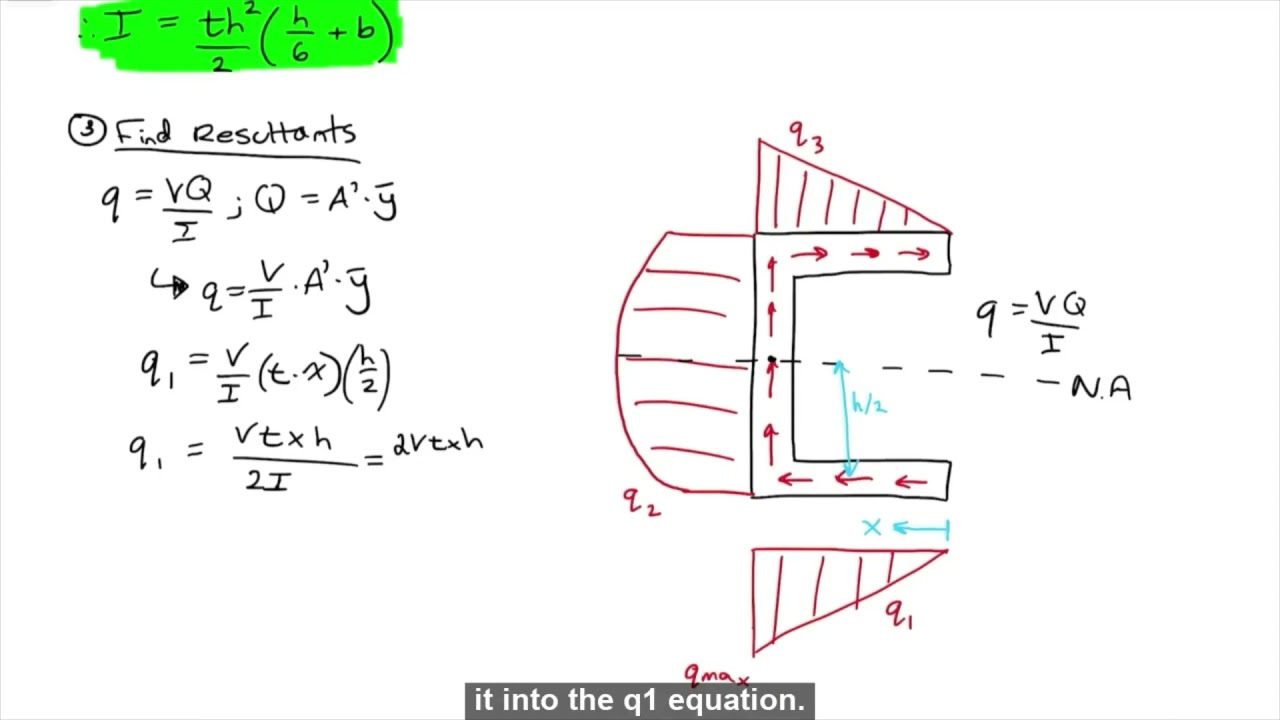 ∴ I = th²/2 (h/6 + b)
③ Find Resultants
q = VQ/I ; Q = A'·ȳ
↳ q = V/I · A'·ȳ
q₁ = V/I (t·x)(h/2)
q₁ = Vtxh/2I = 2Vtxh
q₃
q = VQ/I
N.A
h/2
q₂
x
q₁
qmax
it into the q1 equation.